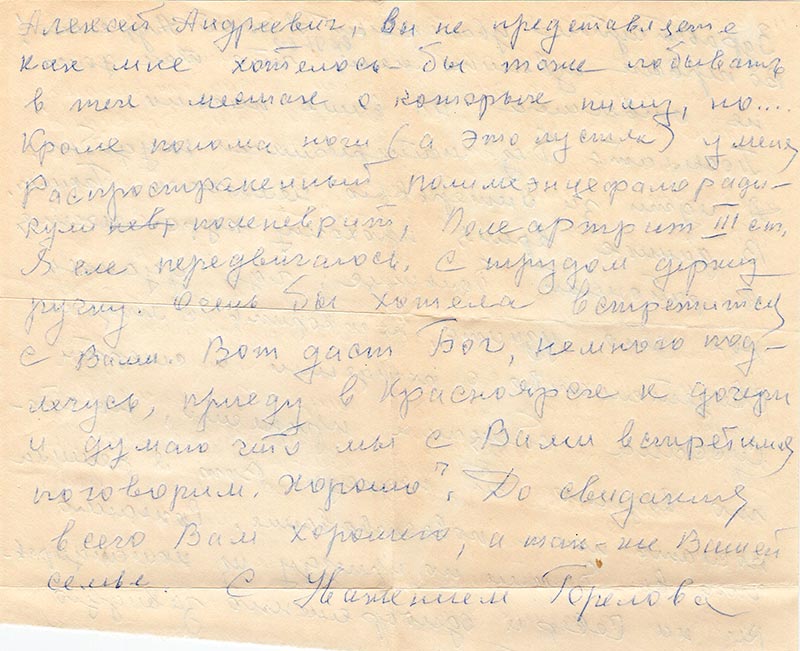 Алексей Андреевич, Вы не представляете
как мне хотелось-бы тоже побывать
в тех местах о которых пишу, но....
Кроме полома ноги (а это пустяк) у меня
Распространенный полимеэнцефалоради-
кули нев, поленеврит, Поле артрит III ст,
Я еле передвигалось, с трудом держу
ручку. Очень бы хотела встретится
с Вами. Вот даст Бог, немного под-
лечусь, приеду в Красноярск к дочери
и думаю что мы с Вами встретимся
поговорим. Хорошо? До свидания
всего Вам хорошего, а так-же Вашей
семье. С Уважением Горелова